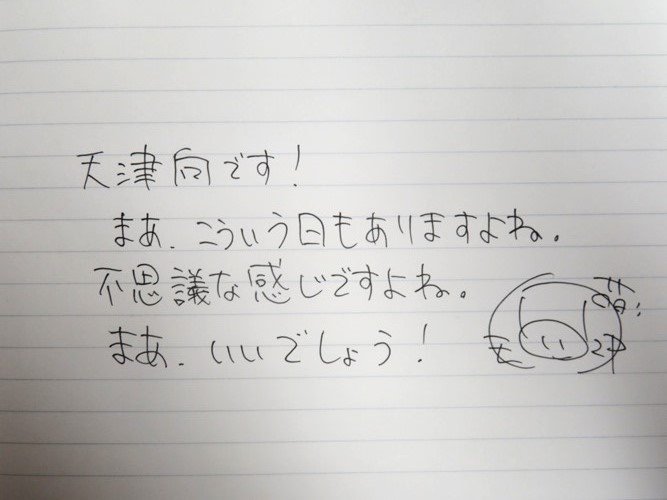 天津向です!
まあ、こういう日もありますよね。
不思議な感じですよね。
まあ、いいでしょう!